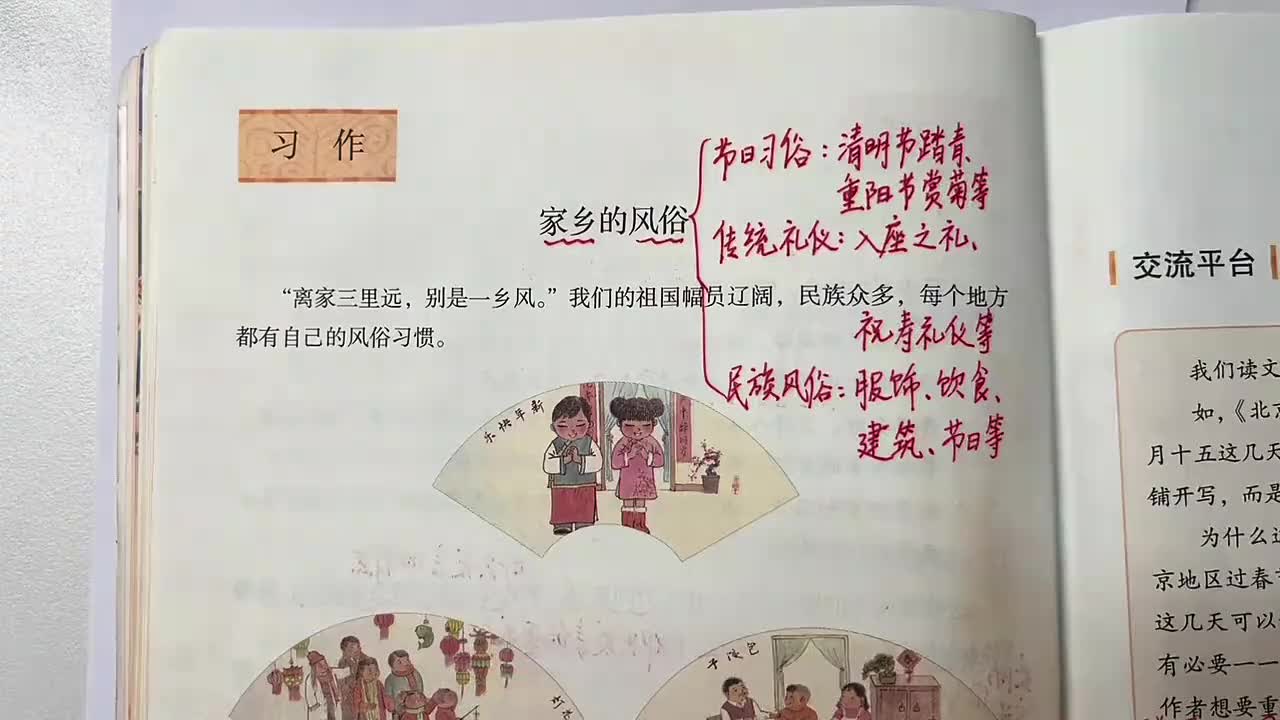 习 作
家乡的风俗
节日习俗：清明节踏青、
重阳节赏菊等
传统礼仪：入座之礼、
祝寿礼仪等
民族风俗：服饰、饮食、
建筑、节日等
“离家三里远，别是一乡风。”我们的祖国幅员辽阔，民族众多，每个地方
都有自己的风俗习惯。
乐快年新
子饺包
交流平台
我们读文
如，《北京
月十五这几天
铺开写，而是
为什么这
京地区过春节
这几天可以
有必要一一
作者想要重